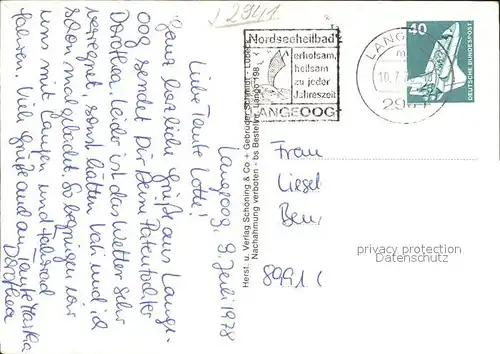 2941.
Nordseeheilbad
erholsam,
heilsam
zu jeder
Jahreszeit
LANGEOOG
LANGE
40
DEUTSCHE BUNDESPOST
Langeoog, 9. Juli 1978
Liebe Tante Lotte!
Ganz herzliche Grüße aus Lange-
oog sendet Dir Deine Patentochter
Dorothea. Leider ist das Wetter sehr
verregnet, sonst hätten Vati und ich
schon mal gebadet. So begnügen wir
uns mit Laufen und Fahrrad
fahren. Viele Grüße auch an Tante Martha
Dorothea
Herst. u. Verlag Schöning & Co + Gebrüder Schmidt - Lübeck
Nachahmung verboten - bs Bestellnr. Lango 198
Frau
Liesel
Ben
8991
privacy protection
Datenschutz